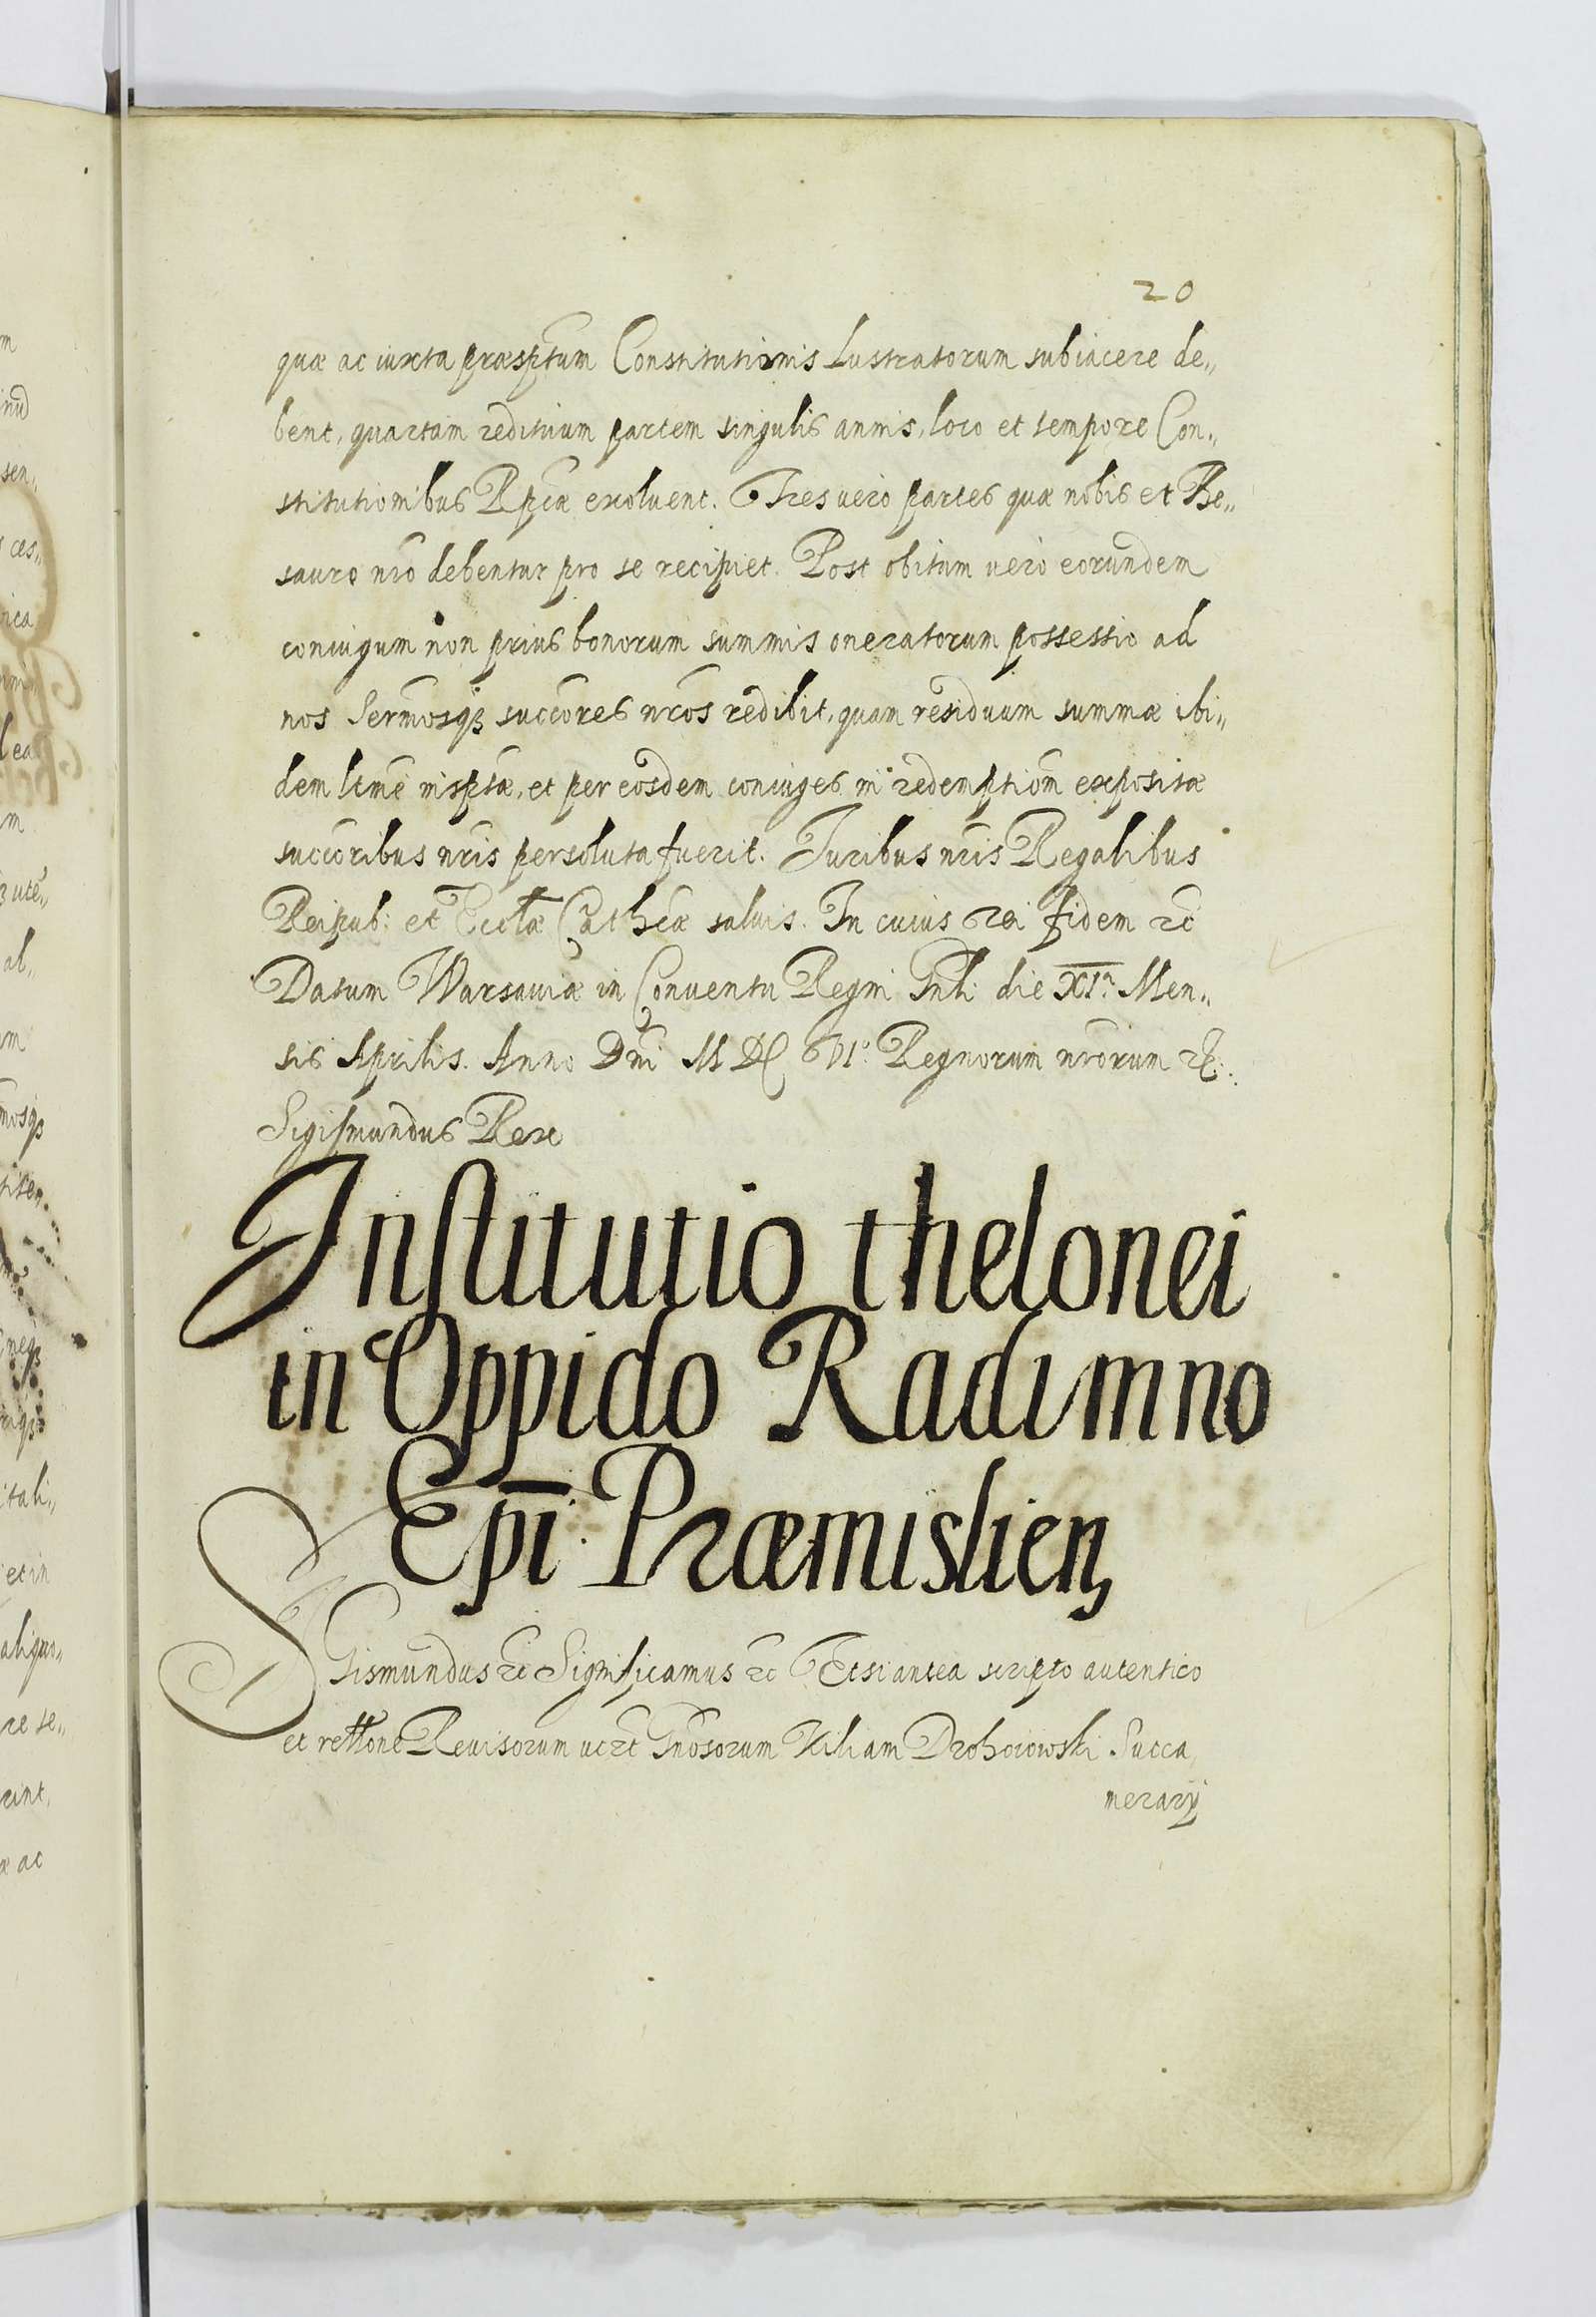 20
quæ ac iuxta præsptum Constitutionis Lustratorum subiacere de„
bent, quartam redituum partem singulis annis, loco et tempore Con„
stitutionibus Rpcæ exoluent. Tres uero partes quæ nobis et The„
sauro nro debentur pro se recipiet. Post obitum uero eorundem
coniugum non prius bonorum summis oneratorum possessio ad
nos Sermosq; succores nros redibit, quam residuum summæ ibi„
dem ltme insptæ, et per eosdem coniuges in redemptiom expositæ
succoribus nris persoluta fuerit. Juribus nris Regalibus
Reipub: et Eccłæ Cathcæ saluis. In cuius rei fidem etc
Datum Warsauiæ in Conuentu Regni Gnli die XIa. Men„
sis Aprilis. Anno Dni M DC VIo. Regnorum nrorum etc.
Sigismundus Rex
Institutio thelonei
in Oppido Radimno
Epi Præmislien
SGismundus etc Significamus etc Etsi antea scripto autentico
et rełłone Reuisorum Gnosorum Kiliam Drohoiowski Succa
merarij